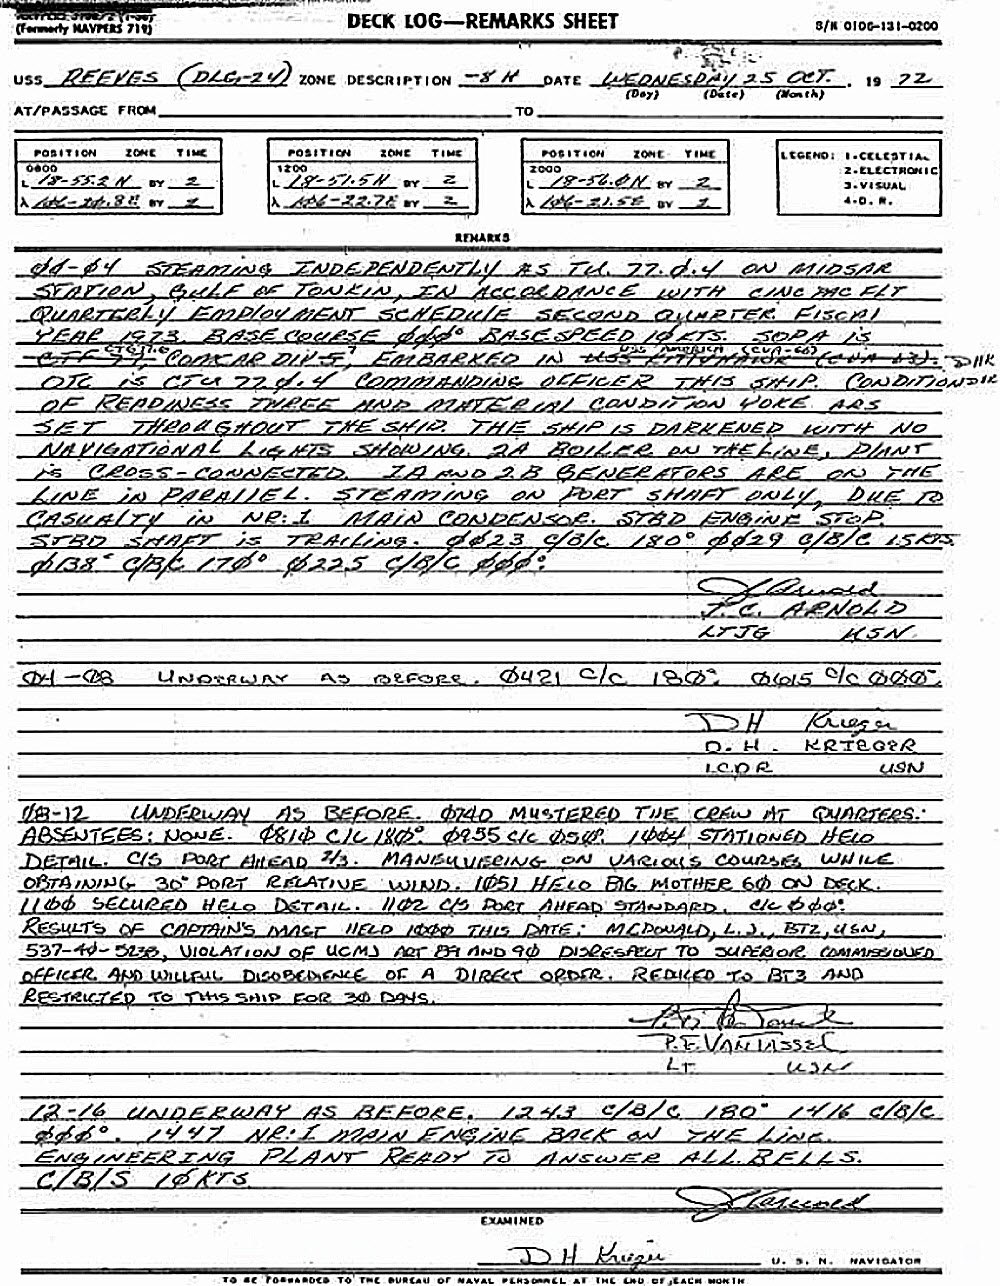 (Formerly NAVPERS 719)
DECK LOG—REMARKS SHEET
S/N 0106-131-0200
USS REEVES (DLG-24) ZONE DESCRIPTION -8 H DATE WEDNESDAY 25 OCT. 19 72
(Day) (Date) (Month)
AT/PASSAGE FROM TO
POSITION ZONE TIME
0800
L 18-55.2 N BY 2
λ BY 2
POSITION ZONE TIME
1200
L 18-51.5 N BY 2
λ 106-22.7E BY 2
POSITION ZONE TIME
2000
L 18-56.0N BY 2
λ 106-21.5E BY 2
LEGEND: 1-CELESTIAL
2-ELECTRONIC
3-VISUAL
4-D. R.
REMARKS
00-04 STEAMING INDEPENDENTLY AS TU. 77.0.4 ON MIDSAR
STATION, GULF OF TONKIN, IN ACCORDANCE WITH CINCPACFLT
QUARTERLY EMPLOYMENT SCHEDULE SECOND QUARTER FISCAL
YEAR 1973. BASE COURSE 000° BASE SPEED 10 KTS. SOPA IS
COMCARDIV EMBARKED IN USS AMERICA (CVA-66) DHK
OTC IS CTU 77.0.4 COMMANDING OFFICER THIS SHIP. CONDITION DHK
OF READINESS THREE AND MATERIAL CONDITION YOKE ARS
SET THROUGHOUT THE SHIP. THE SHIP IS DARKENED WITH NO
NAVIGATIONAL LIGHTS SHOWING. 2A BOILER ON THE LINE, PLANT
IS CROSS-CONNECTED. 2A AND 2B GENERATORS ARE ON THE
LINE IN PARALLEL. STEAMING ON PORT SHAFT ONLY, DUE TO
CASUALTY IN NR: 1 MAIN CONDENSOR. STBD ENGINE STOP.
STBD SHAFT IS TRAILING. 0023 C/B/C 180° 0029 C/B/C 15 KTS
0138° C/B/C 170° 0225 C/B/C 000°.
J Arnold
J. C. ARNOLD
LTJG USN
04-08 UNDERWAY AS BEFORE. 0421 C/C 180°. 0615 C/C 000°.
D H Krieger
D. H. KRIEGER
LCDR USN
08-12 UNDERWAY AS BEFORE. 0740 MUSTERED THE CREW AT QUARTERS:
ABSENTEES: NONE. 0810 C/C 180°. 0955 C/C 050°. 1004 STATIONED HELO
DETAIL. C/S PORT AHEAD 2/3. MANEUVERING ON VARIOUS COURSES WHILE
OBTAINING 30° PORT RELATIVE WIND. 1051 HELO BIG MOTHER 60 ON DECK.
1100 SECURED HELO DETAIL. 1102 C/S PORT AHEAD STANDARD, C/C 000°.
RESULTS OF CAPTAIN'S MAST HELD 1000 THIS DATE: MCDONALD, L.J., BT2, USN,
VIOLATION OF UCMJ ART 89 AND 90 DISRESPECT TO SUPERIOR COMMISSIONED
OFFICER AND WILLFUL DISOBEDIENCE OF A DIRECT ORDER. REDUCED TO BT3 AND
RESTRICTED TO THIS SHIP FOR 30 DAYS.
P.E. VANTASSEL
LT USN
12-16 UNDERWAY AS BEFORE. 1243 C/B/C 180° 1416 C/B/C
000°. 1447 NR: 1 MAIN ENGINE BACK ON THE LINE.
ENGINEERING PLANT READY TO ANSWER ALL BELLS.
C/B/S 10 KTS
J Arnold
EXAMINED
D H Krieger U. S. N. NAVIGATOR
TO BE FORWARDED TO THE BUREAU OF NAVAL PERSONNEL AT THE END OF EACH MONTH